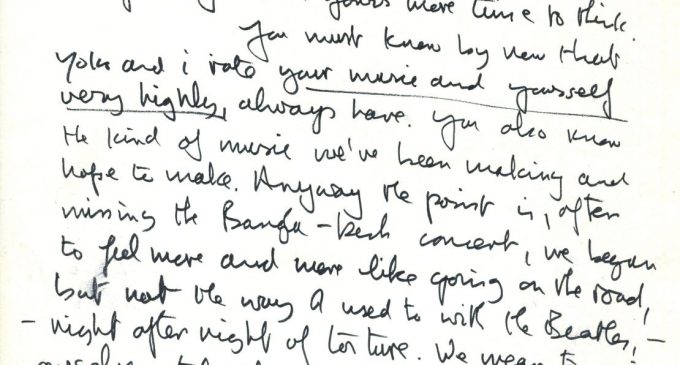 yours more time to think.
You must know by now that
Yoko and i rate your music and yourself
very highly, always have. You also know
the kind of music we've been making and
hope to make. Anyway the point is, after
missing the Bangla-desh concert, we began
to feel more and more like going on the road,
but not the way I used to with the Beatles, -
- night after night of torture. We mean to